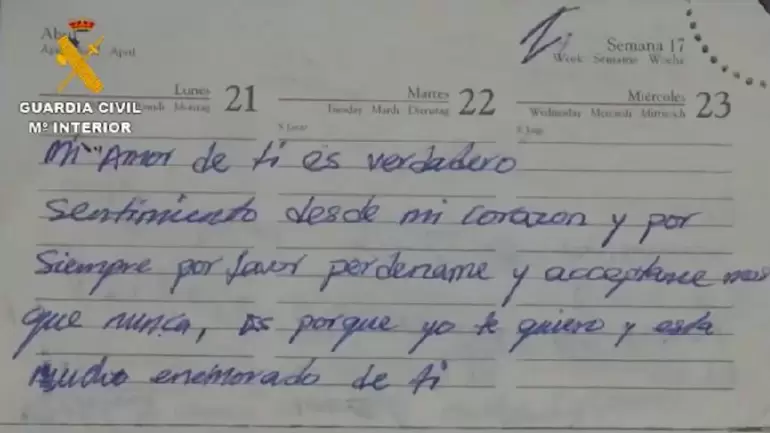 Abril
April
Semana 17
Week Semaine Woche
Lunes 21
Montag
Martes 22
Tuesday Mardi Dienstag
Miércoles 23
Wednesday Mercredi Mittwoch
GUARDIA CIVIL
Mº INTERIOR
Mi Amor de ti es verdadero
Sentimiento desde mi corazon y por
Siempre por favor perdename y acceptame mas
que nunca, es porque yo te quiero y esta
mucho enemorado de ti